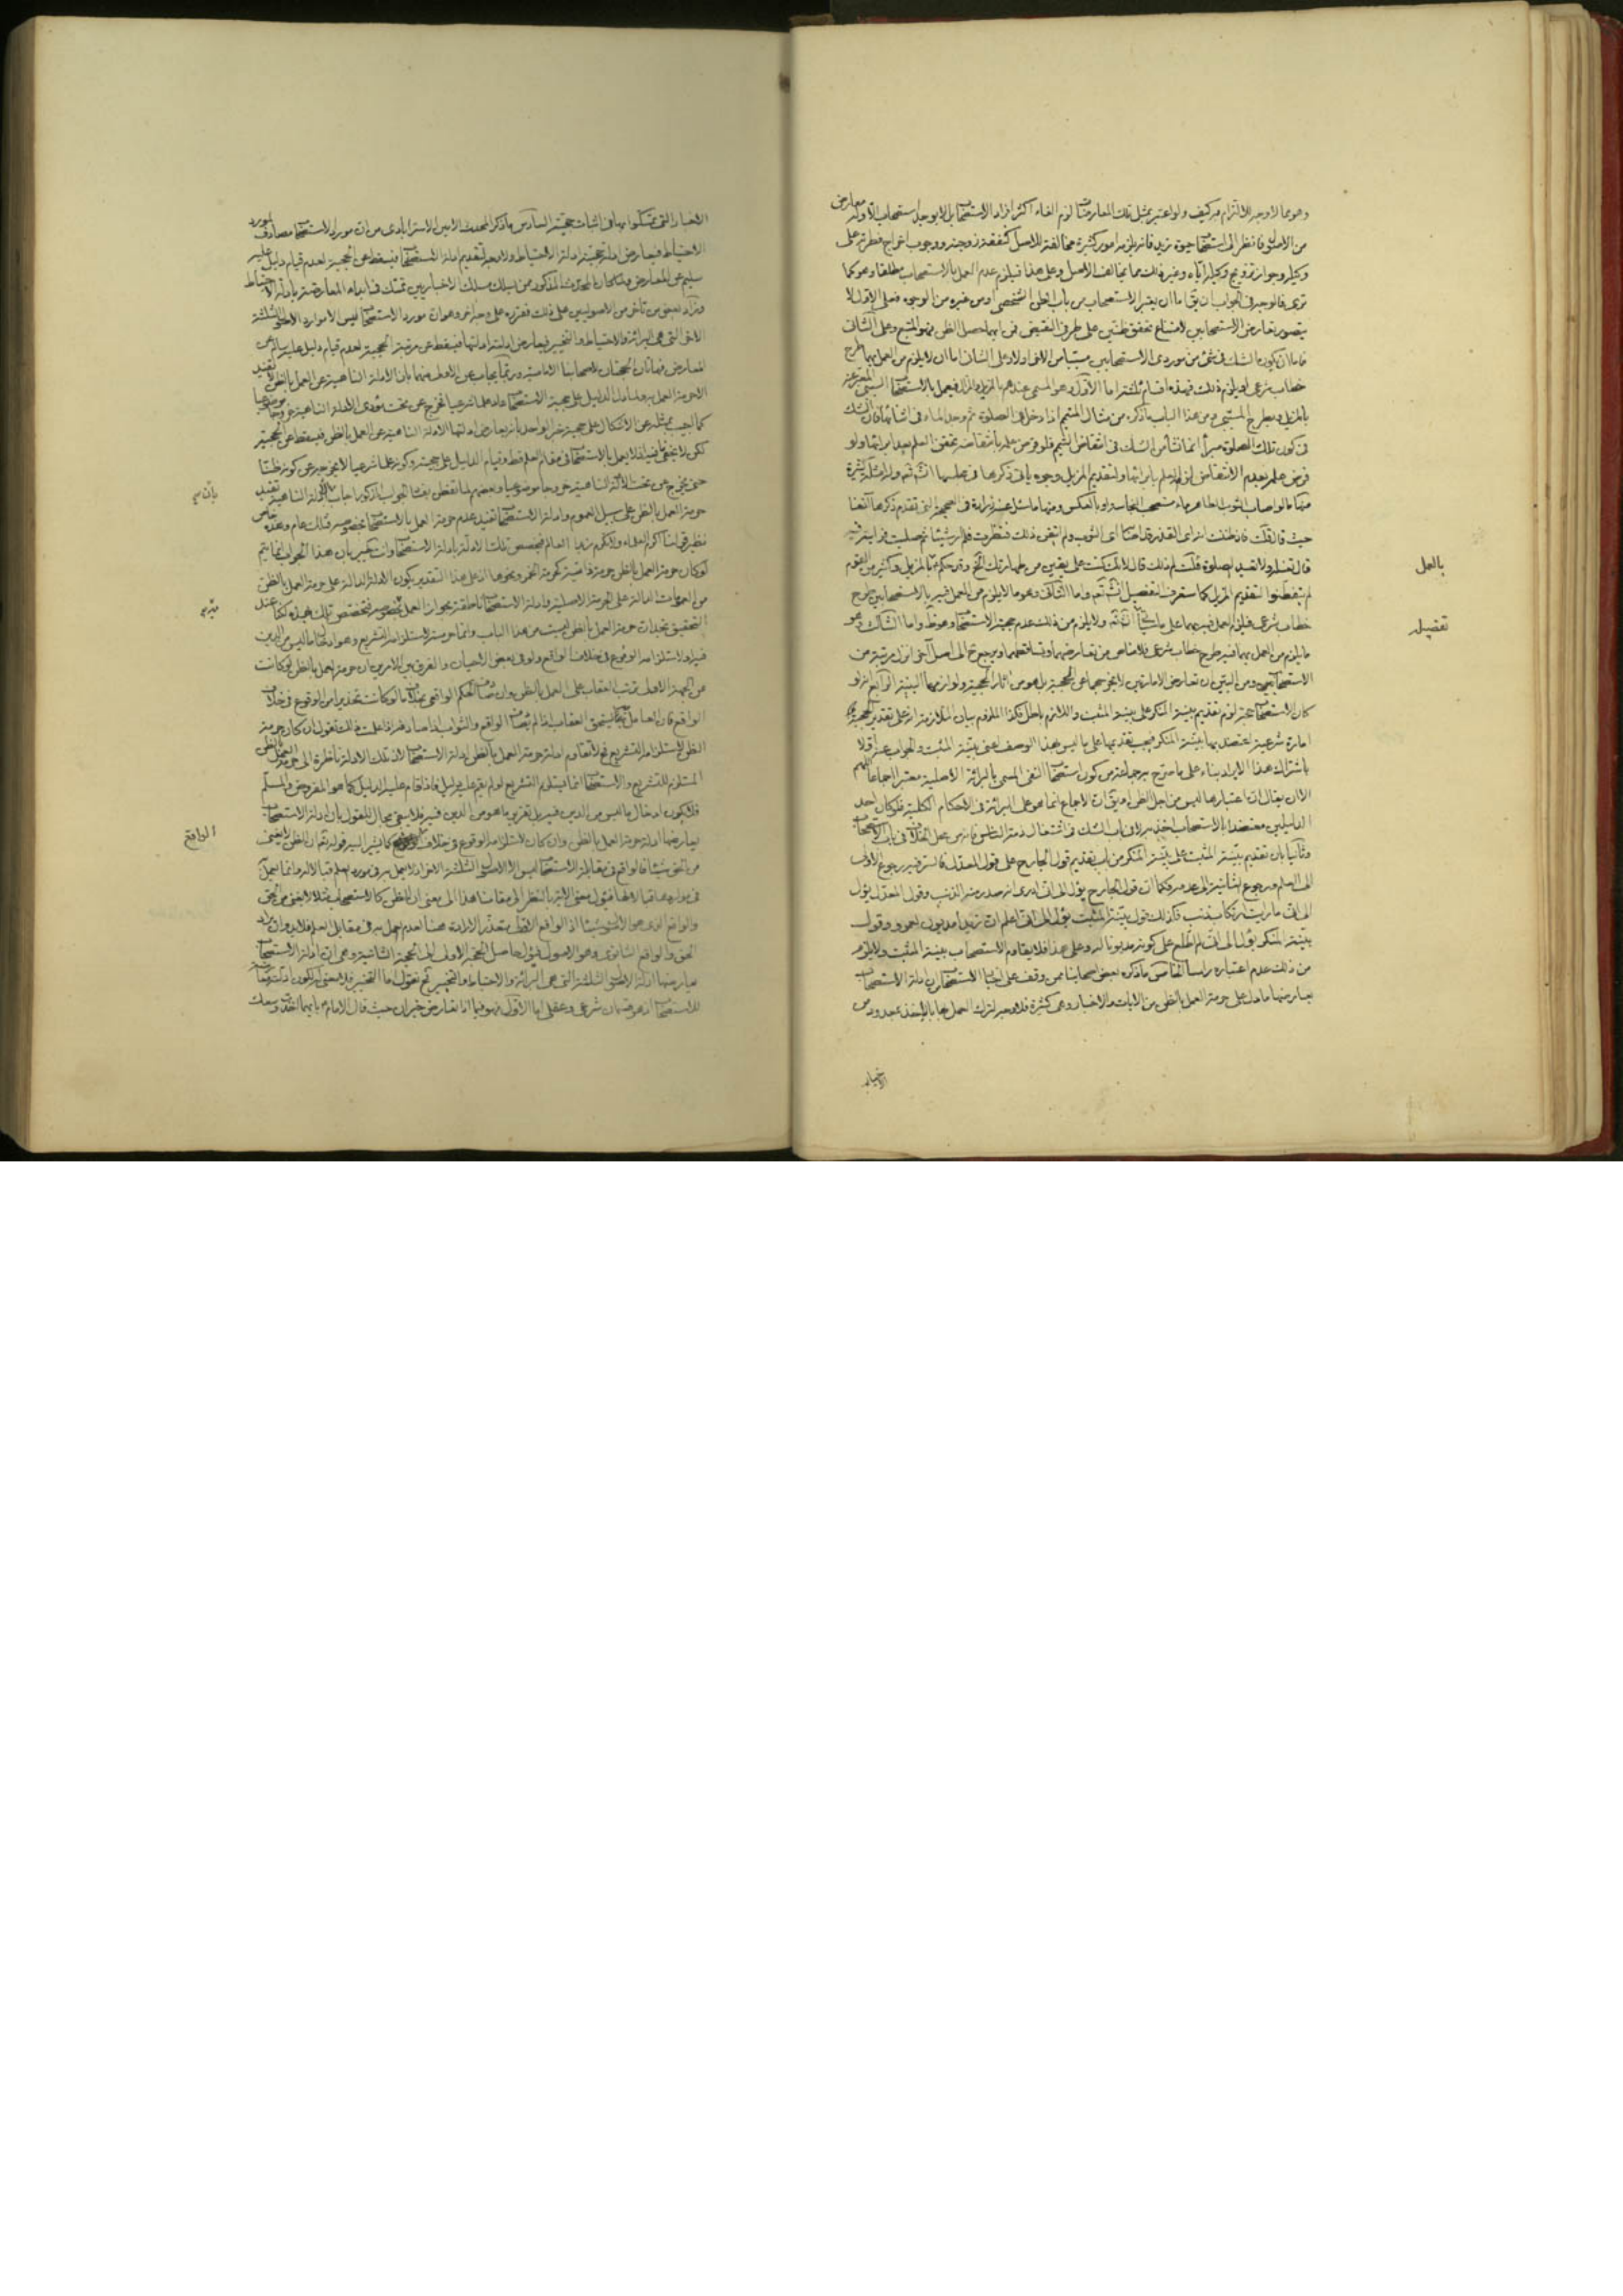 وهو مما لا وجه للالتزام به كيف ولو اعتبر بمثل تلك المعارضات لزم الغاء اكثر افراد الاستصحاب بل لا يوجد استصحاب الا وله معارض
من الاصول فانظر الى استصحاب حيوة زيد فانه يلزمه امور كثيرة مخالفة للاصل كنفقة زوجته ووجوب اخراج فطرته على
وكيله وجواز تزويج وكيله اياه وغير ذلك مما يخالف الاصل وعلى هذا فيلزم عدم العمل بالاستصحاب مطلقا وهو كما
ترى فالوجه في الجواب ان يقال اما ان يعتبر الاستصحاب من باب الظن الشخصي او من غيره من الوجوه فعلى الاول لا
يتصور تعارض الاستصحابين لامتناع تحقق ظنين على طرفي النقيض ففي ايهما حصل الظن فهو المتبع وعلى الثاني
فاما ان يكون الشك في شيء من موردي الاستصحابين مسببا من الاخر او لا وعلى الثاني اما ان لا يلزم من العمل بهما طرح
خطاب شرعي او يلزم ذلك فهذه اقسام ثلثة اما الاول وهو المسمى عندهم بالمزيل والمزال فيعمل بالاستصحاب السببي المعبر عنه
بالمزيل ويطرح المسببي ومن هذا الباب ما ذكره من مثال المتيمم اذا دخل في الصلوة ثم وجد الماء في اثنائها فان الشك
في كون تلك الصلوة مبرأ انما نشأ من الشك في انتقاض التيمم فلو فرض علمه بانتقاضه تحقق العلم بعدم ابرائها ولو
فرض علمه بعدم الانتقاض العلم بابرائها ولتقديم المزيل وجوه ياتي ذكرها في محلها انشاء الله تعالى وله امثلة كثيرة
منها ما لو اصاب الثوب الطاهر ماء مستصحب النجاسة او بالعكس ومنها ما سئل عنه زرارة في الصحيحة التي تقدم ذكرها آنفا
حيث قال قلت فان ظننت انه اي القذر قد اصابه اي الثوب ولم اتيقن ذلك فنظرت فلم ار شيئا ثم صليت فرايت فيه
قال تغسله ولا تعيد الصلوة قلت لم ذلك قال لانك كنت على يقين من طهارتك الخ وقد حكم بالمزيل وكثير من القوم
لم يتفطنوا لتقديم المزيل كما ستعرف التفصيل انشاء الله تعالى واما الثاني وهو ما لا يلزم من العمل فيه بالاستصحابين طرح
خطاب شرعي فيلزم العمل فيه بهما على ما سيجئ ان شاء الله ولا يلزم من ذلك عدم حجية الاستصحاب وهو ظاهر واما الثالث وهو
ما يلزم من العمل بهما فيه طرح خطاب شرعي فلا مناص من تعارضهما وتساقطهما ويرجع الى اصل آخر انزل مرتبة من
الاستصحابين ومن البين ان تعارض الامارتين لا يخرجهما عن الحجية بل هو من اثار الحجية ولوازمها البينة الرابع انه لو
كان الاستصحاب حجة لزم تقديم بينة المنكر على بينة المثبت واللازم باطل فكذا الملزوم بيان الملازمة انه على تقدير الحجية
امارة شرعية اعتضد بها بينة المنكر فيجب تقديمها على ما ليس بهذا الوصف اعني بينة المثبت والجواب عنه اولا
باشتراك هذا الايراد بناء على ما صرح به جماعة من كون استصحاب النفي المسمى بالبرائة الاصلية معتبرا اجماعا اللهم
الا ان يقال ان اعتبارها ليس من اجل الظن او يقال ان الاجماع انما هو على البرائة في الاحكام الكلية فلو كان احد
الدليلين معتضدا بالاستصحاب اخذ به لا في باب الشك في اشتغال ذمة الناس فانه من محل الخلاف في باب الاستصحاب
وثانيا بان تقديم بينة المثبت على بينة المنكر من باب تقديم قول الجارح على قول المعدل فالسر فيه رجوع الاول
الى العلم ورجوع الثانية الى عدمه فكما ان قول الجارح يؤل الى اني ادري انه صدر منه الذنب وقول المعدل يؤل
الى اني ما رايت ارتكاب ذنب فكذلك قول بينة المثبت يؤل الى اني اعلم ان زيدا مديون لعمرو وقول
بينة المنكر يؤل الى اني لم اطلع على كونه مديونا له وعلى هذا فلا يقاوم الاستصحاب بينة المثبت ولا يلزم
من ذلك عدم اعتباره راسا الخامس ما ذكره بعض اصحابنا ممن وقف على انجبار الاستصحاب ان ادلة الاستصحاب
يعارضها ما دل على حرمة العمل بالظن من الايات والاخبار وهي كثيرة فلا وجه لترك العمل بها بالاخذ بمجرد من
الاخبار
بالعمل
تفصيله
الاخبار التي تمسكوا بها في اثبات حجيته السادس ما ذكره المحدث الامين الاسترابادي من ان مورد الاستصحاب مصادف لمورد
الاحتياط فيعارض ادلة حجيته ادلة الاحتياط ولا وجه لتقديم ادلة الاستصحاب فيسقط عن الحجية لعدم قيام دليل عليه
سليم عن المعارض ولما كان المحدث المذكور ممن سلك مسلك الاخباريين تمسك في ابداء المعارضة بادلة الاحتياط
وزاد بعض من تأخر من الاصوليين على ذلك فقرره على وجه اخر وهو ان مورد الاستصحاب ليس الا موارد الاصول الثلثة
الاخر التي هي البرائة والاحتياط والتخيير فيعارض ادلته ادلتها فيسقط عن مرتبة الحجية لعدم قيام دليل عليه سالم عن
المعارض فهاتان حجتان لاصحابنا الامامية وربما يجاب عن الاولى منهما بان الادلة الناهية عن العمل بالظن لا تفيد
الا حرمة العمل به وما دل الدليل على حجية الاستصحاب عاد علما شرعيا خرج عن تحت مؤدى الادلة الناهية خروجا موضوعيا
كما اجيب بمثله عن الاشكال على حجية خبر الواحد بانه يعارض ادلتها الادلة الناهية عن العمل بالظن فيسقط عن الحجية
لكن لا يخفى ما فيه اذ لا يعمل بالاستصحاب في مقام العلم قط وقيام الدليل على حجيته وكونه علما شرعيا لا يخرجه عن كونه ظنا
حتى يخرج عن تحت الادلة الناهية خروجا موضوعيا وبعضهم لما تفطن بفساد الجواب المذكور اجاب بان الادلة الناهية تفيد
حرمة العمل بالظن على سبيل العموم وادلة الاستصحاب تفيد عدم حرمة العمل بالاستصحاب بخصوصه فتلك عام وهذه خاص
نظير قولنا اكرم العلماء ولا تكرم زيدا العالم فيخصص تلك الادلة بادلة الاستصحاب وانت خبير بان هذا الجواب انما يتم
لو كان حرمة العمل بالظن حرمة ذاتية كحرمة الخمر ونحوها اذ على هذا التقدير يكون الادلة الدالة على حرمة العمل بالظن
من العمومات الدالة على الحرمة الاصلية وادلة الاستصحاب ناطقة بجواز العمل بخصوصه فتخصص تلك بهذه لكنا عند
التحقيق نجد ان حرمة العمل بالظن ليست من هذا الباب وانما حرمته لاستلزامه التشريع وهو ادخال ما ليس من الدين
فيه او لاستلزامه الوقوع في خلاف الواقع ولو في بعض الاحيان والفرق بين الامرين ان حرمة العمل بالظن لو كانت
من الجهة الاولى ترتب العقاب على العمل بالظن وان صادف الحكم الواقعي بخلاف ما لو كانت تحذيرا من الوقوع في خلاف
الواقع فان العامل به انما يستحق العقاب اذا لم يصادف الواقع والثواب اذا صادفه اذا علمت ذلك فنقول ان كان حرمة
الظن لاستلزامه التشريع فلا تقاوم ادلة حرمة العمل بالظن ادلة الاستصحاب لان تلك الادلة ناظرة الى حرمة العمل بالظن
المستلزم للتشريع والاستصحاب انما يستلزم التشريع لو لم يقم عليه دليل فاذا قام عليه الدليل كما هو المفروض والمسلم
فلا يكون ادخال ما ليس من الدين فيه بل تقرير ما هو من الدين فيه فلا يبقى مجال للقول بان ادلة الاستصحاب
يعارضها ادلة حرمة العمل بالظن وان كان لاستلزامه الوقوع في خلاف كما يشير اليه قوله تعالى ان الظن لا يغني
من الحق شيئا فالواقع في مقابلة الاستصحاب ليس الا الاصول الثلثة الاخر اذ لا يعمل به في مورد العلم قبالا له وانما يعمل
والواقع الذي هو الاصول شيئا اذ الواقع الاولي متعذر الارادة هنا لعدم العمل به في مقابل العلم فلا بد وان يراد
الحق والواقع الثانوي وهو الاصول فيؤل حاصل الحجة الاولى الى الحجة الثانية وهي ان ادلة الاستصحاب
يعارضها ادلة الاصول الثلثة التي هي البرائة والاحتياط والتخيير ثم نقول اما التخيير فلا معنى لكون ادلته معارضة
للاستصحاب اذ هو قسمان شرعي وعقلي اما الاول فهو فيما اذا تعارض خبران حيث قال الامام بايهما اخذت وسعك
بان
الواقع